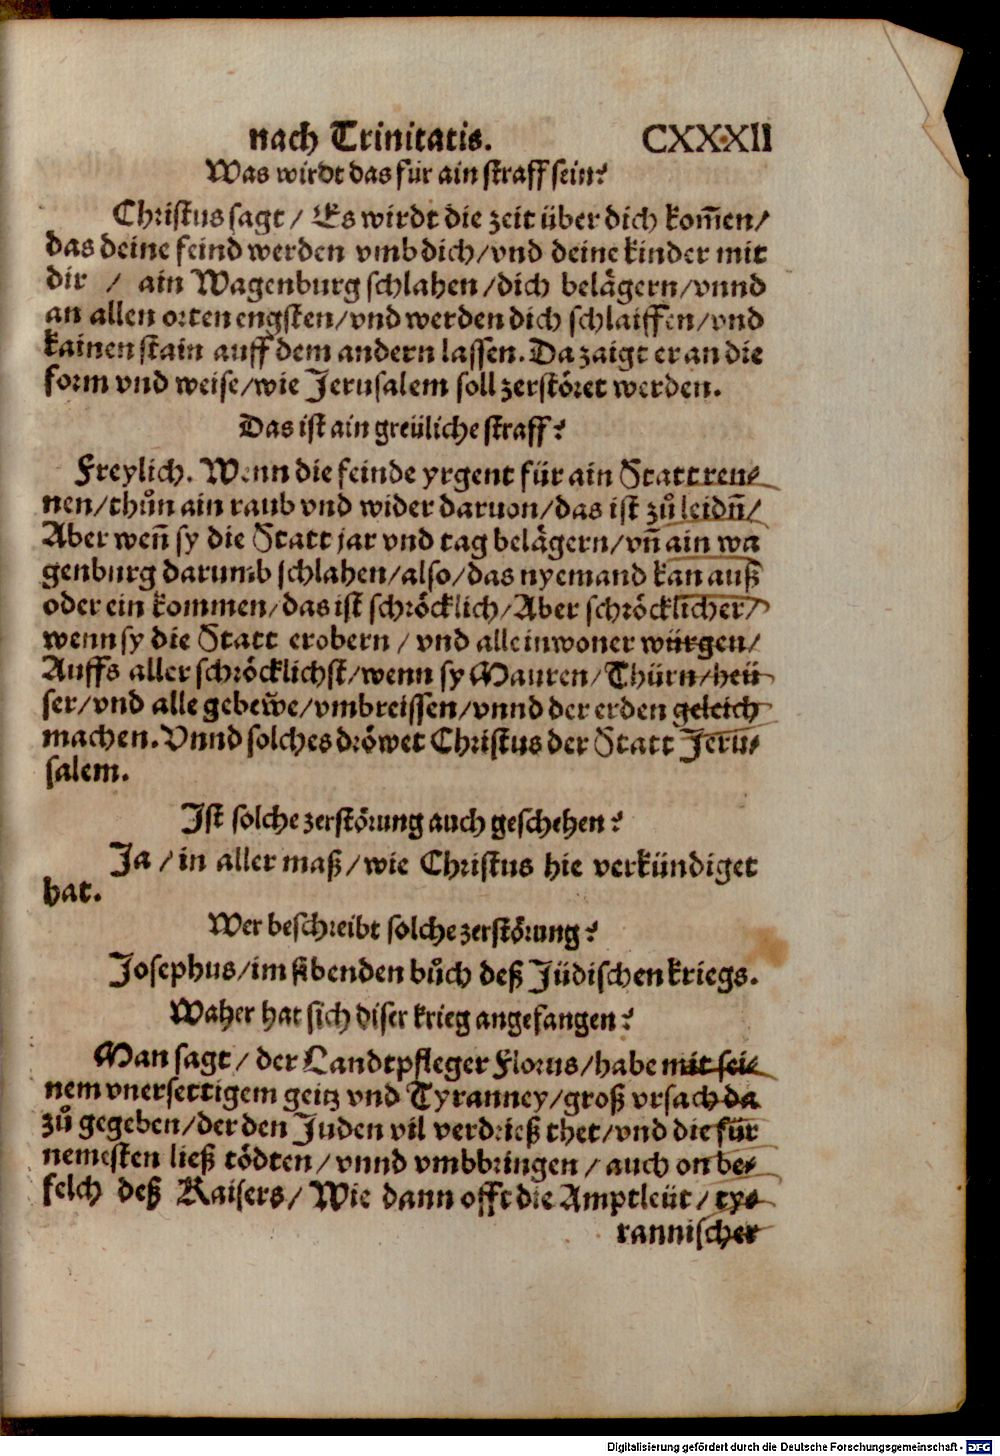 nach Trinitatis. CXXXII
Was wirdt das für ain straff sein?
Christus sagt / Es wirdt die zeit über dich kom̃en/
das deine feind werden vmb dich/vnd deine kinder mit
dir / ain Wagenburg schlahen/dich belägern/vnnd
an allen orten engsten/vnd werden dich schlaiffen/vnd
kainen stain auff dem andern lassen. Da zaigt er an die
form vnd weise/wie Jerusalem soll zerstöret werden.
Das ist ain greüliche straff?
Freylich. Wenn die feinde yrgent für ain Statt ren⸗
nen/thůn ain raub vnd wider daruon/das ist zů leidn̄/
Aber wen̄ sy die Statt jar vnd tag belägern/vn̄ ain wa
genburg darumb schlahen/also/das nyemand kan auß
oder ein kommen/das ist schröcklich/Aber schröcklicher/
wenn sy die Statt erobern / vnd alle inwoner würgen/
Auffs aller schröcklichst/wenn sy Mauren/Thürn/heü
ser/vnd alle gebew̆e/vmbreissen/vnnd der erden geleich
machen. Vnnd solches dröwet Christus der Statt Jeru⸗
salem.
Ist solche zerstörung auch geschehen?
Ja /in aller maß/wie Christus hie verkündiget
hat.
Wer beschreibt solche zerstörung?
Josephus/im sibenden bůch deß Jüdischen kriegs.
Waher hat sich diser krieg angefangen?
Man sagt/ der Landtpfleger Florus/habe mit sei⸗
nem vnersettigem geitz vnd Tyranney/groß vrsach da
zů gegeben/der den Juden vil verdrieß thet/vnd die für
nemesten ließ tödten/vnnd vmbbringen / auch on be⸗
felch deß Kaisers/ Wie dann offt die Amptleüt/ ty⸗
rannischer
Digitalisierung gefördert durch die Deutsche Forschungsgemeinschaft - DFG